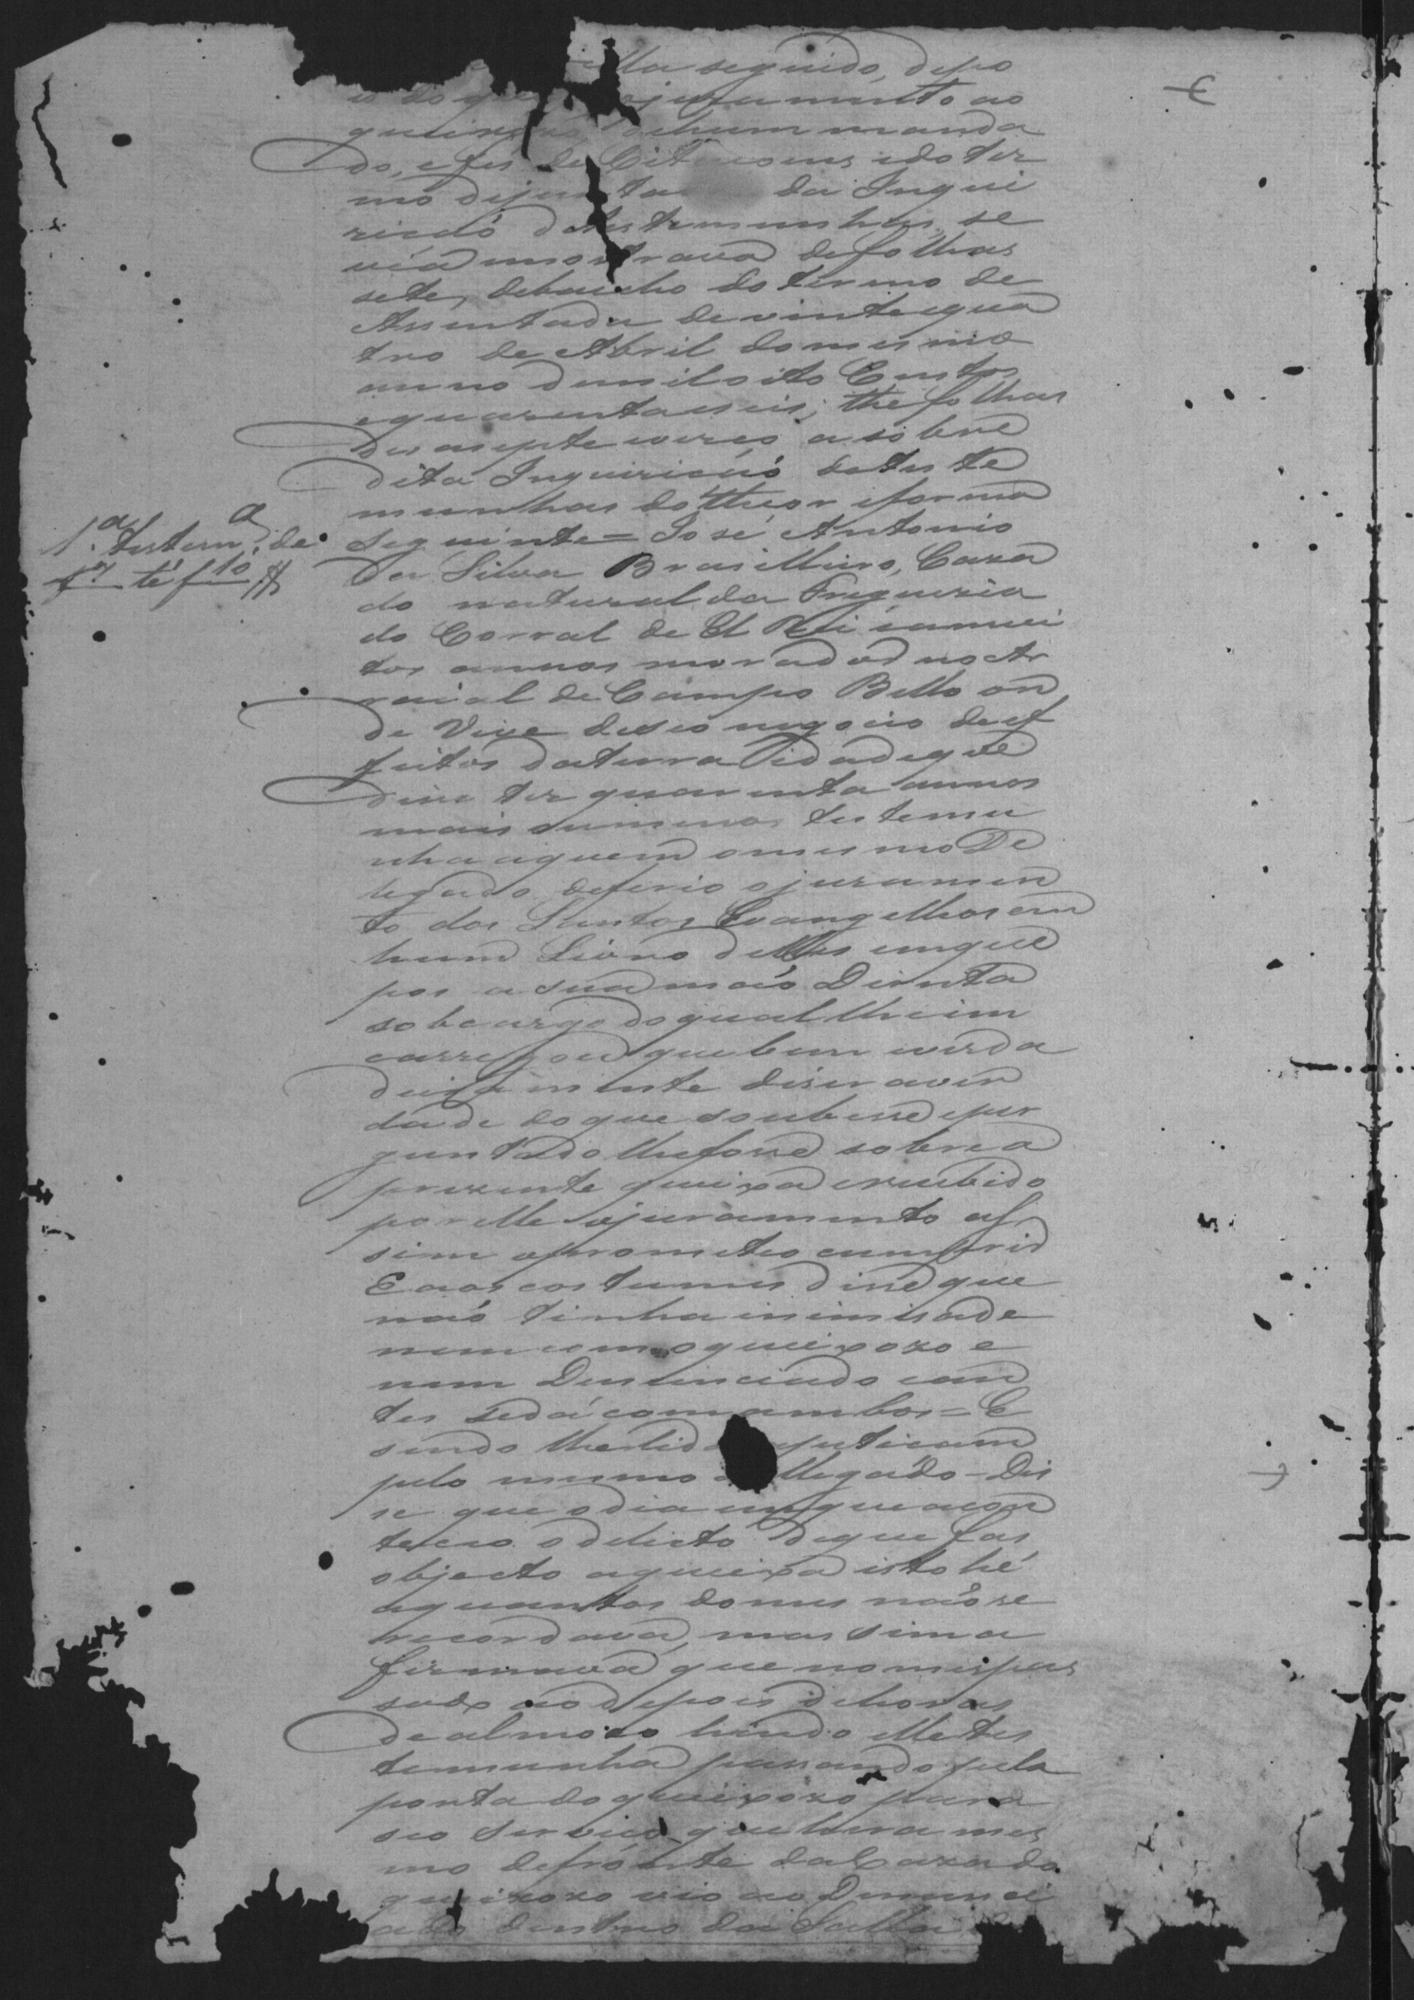 lla seguido, depo
is do q ojuramento ao
queixozo hum manda
do, e fes de Cit coens e do ter
mo dejunta da Inqui
ricaõ detestemunhas se
via mostrava defolhas
sete, debaicho do termo de
Assentada de vinte equa
tro de Abril domesmo
anno demil oito Centos
equarenta eseis, the folhas
desasepte verço a sobre
dita Inquiricaõ deteste
munhas do theor eforma
1.ª testem.ª de
f 7 té f 10
seguinte = José Antonio
da Silva Brasilleiro, Caza
do natural da Freguezia
do Corral de El Rei iamuei
tos annos morador no Ar
raial de Campo Bello on
de Vive deseo negocio de ef
feitos daterra idade que
disse ter quarenta annos
mais oumenos testemu
nha aquem omesmo De
legado deferio ojuramen
to dos Santos Evangelhos em
hum Livro delles emque
pos a sua maõ Direita
sobcargo doqual lhe in
carregou que bem verda
deiramente disera aver
dade doque soubesse eper
guntado lhefosse sobre a
prezente queixa erecebido
por elle ojuramento as
sim oprometeo cumprir
E aos costumes disse que
naõ tinha inimisade
nem com o queixozo e
nem Denunciado e an
tes sedá com ambos = E
sendo lhe lida apeticam
pelo mesmo Dellegado - Dis
se que odia emque acon
teceo odelicto deque fas
objecto aqueixa isto hé
aquantos domes naõ se
recordava, mas sim a
firmava que nomespas
sado ao depois dehoras
de almoço hindo elle tes
temunha passando pela
porta doqueixozo para
seo Serviço que hera mes
mo defronte da Caza do
queixozo vio ao Denunci
ado dentro da Salla